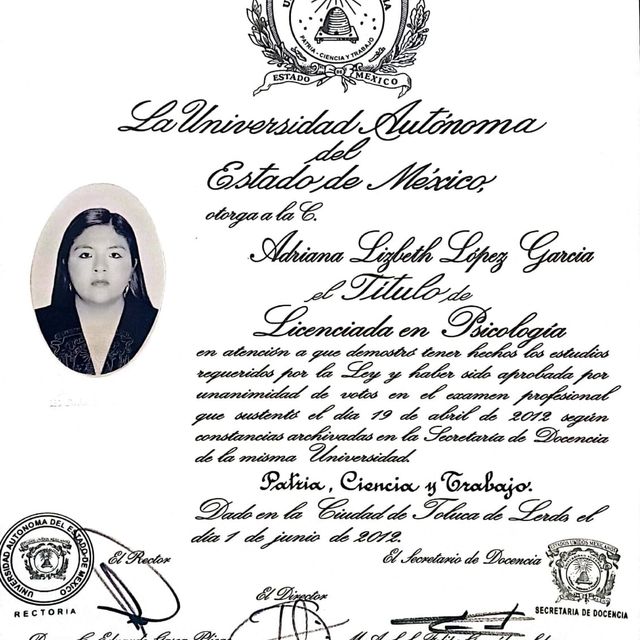 PATRIA · CIENCIA Y TRABAJO
ESTADO DE MEXICO
La Universidad Autónoma
del
Estado de México,
otorga a la C.
Adriana Lizbeth López Garcia
el Título de
Licenciada en Psicología
en atención a que demostró tener hechos los estudios
requeridos por la Ley y haber sido aprobada por
unanimidad de votos en el examen profesional
que sustentó el día 19 de abril de 2012 según
constancias archivadas en la Secretaría de Docencia
de la misma Universidad.
Patria, Ciencia y Trabajo.
Dado en la Ciudad de Toluca de Lerdo, el
día 1 de junio de 2012.
UNIVERSIDAD AUTONOMA DEL ESTADO DE MEXICO
RECTORIA
El Rector
El Secretario de Docencia
ESTADOS UNIDOS MEXICANOS
SECRETARIA DE DOCENCIA
El Director